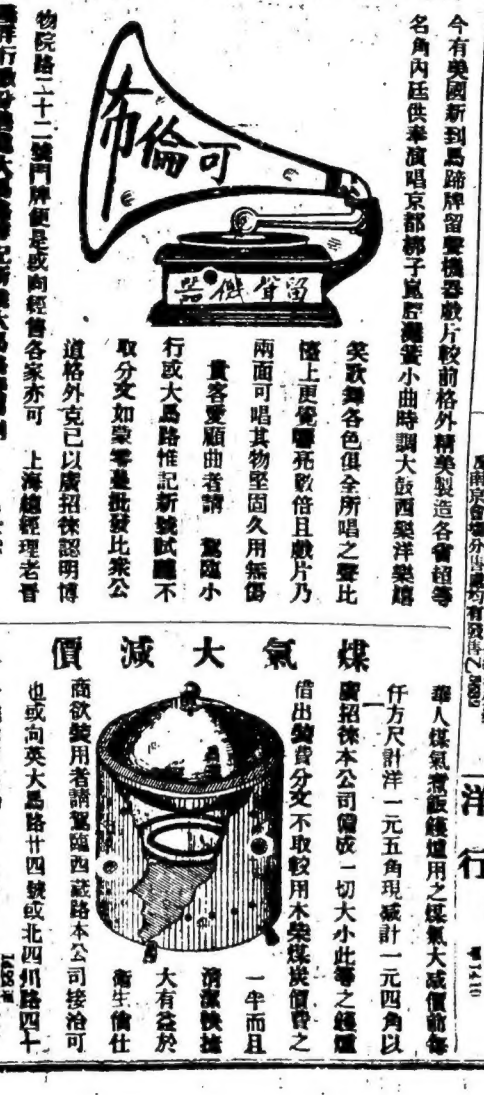 今有美國新到馬蹄牌留聲機器戲片較前格外精美製造各省超等
名角內廷供奉演唱京都梆子崑腔灘簧小曲時調大鼓西樂洋樂嬉
笑歌舞各色俱全所唱之聲比
上更覺響亮數倍且戲片乃
兩面可唱其物堅固久用無傷
貴客愛顧曲者請 駕臨小
行或大馬路惟記新號試聽不
取分文如蒙零躉批發比眾公
道格外克己以廣招徠認明博
物院路二十二號門牌便是或向經售各家亦可 上海總經理老晋
布倫可
留聲機器
洋行
煤氣大減價
華人煤氣煮飯鑊爐用之煤氣大減價前每
仟方尺計洋一元五角現減計一元四角以
廣招徠本公司備成一切大小此等之鑊爐
借出裝費分文不取較用木柴煤炭價費之
一半而且
清潔快捷
大有益於
衛生倘仕
商欲裝用者請駕臨西藏路本公司接洽可
也或向英大馬路廿四號或北四川路四十